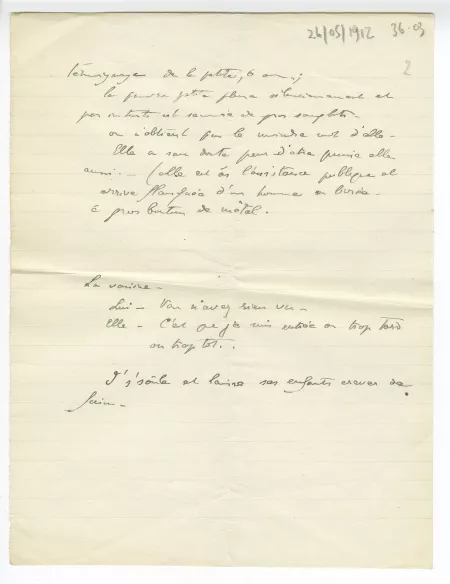 26/05/1912 36.03
2
Témoignage de la petite, 6 ans ;
la pauvre petite pleure silencieusement et
par instants est secouée de gros sanglots.
on n'obtient pas le moindre mot d'elle -
Elle a sans doute peur d'être punie elle
aussi. - (elle est à l'assistance publique et
arrive flanquée d'un homme en livrée
à gros boutons de métal.
La voisine -
Lui - Vous n'avez rien vu -
Elle - C'est que je suis entrée ou trop tard
ou trop tôt.
et laisse ses enfants crever de
faim -